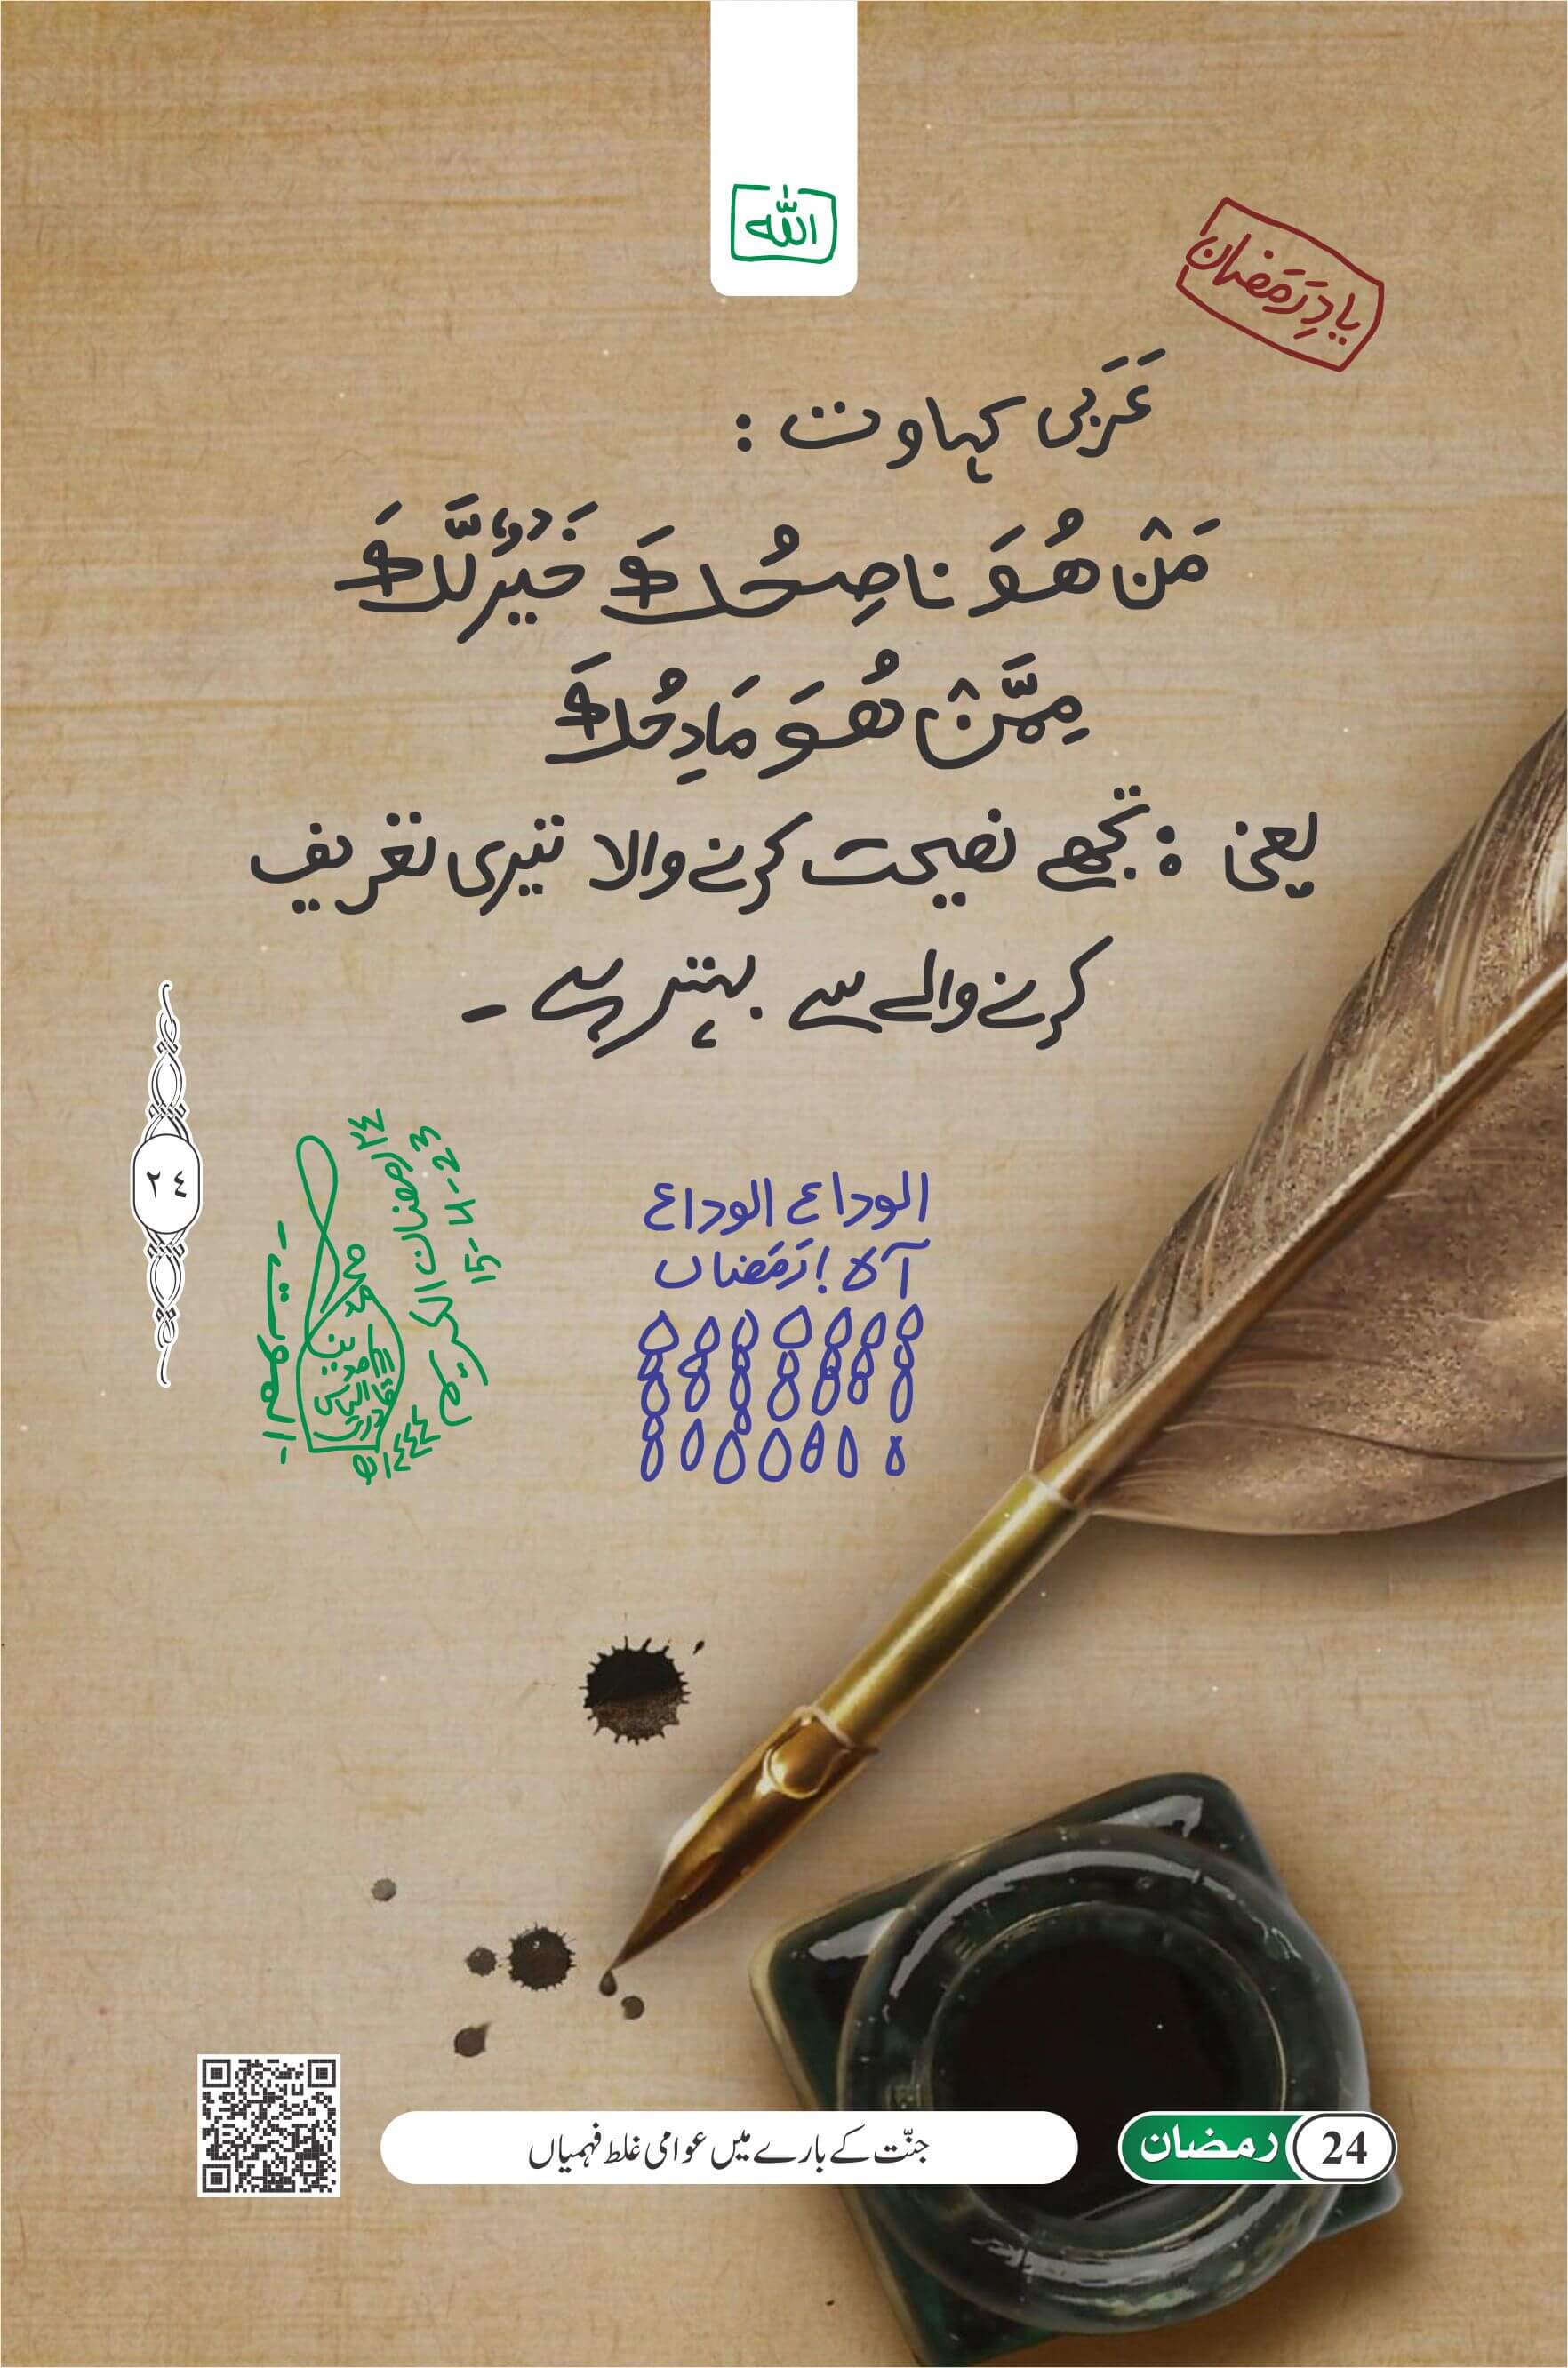 الله
یادِ رَمَضان
عَرَبی کہاوت :
مَنْ هُوَ نَاصِحُكَ خَيْرٌ لَّكَ
مِمَّنْ هُوَ مَادِحُكَ
یعنی : تجھے نصیحت کرنے والا تیری تعریف
کرنے والے سے بہتر ہے ۔
٢٤
الوداع الوداع
آہ ! رَمَضاں
٢٤ رمضان الکریم
١٤٤٤ھ
15-4-23
جنّت کے بارے میں عوامی غلط فہمیاں
رمضان 24